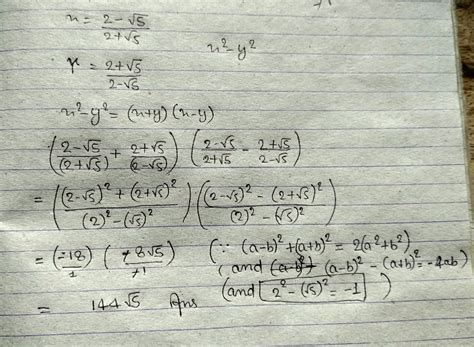 x = 2-√5 / 2+√5
x²-y²
Y = 2+√5 / 2-√5
x²-y² = (x+y) (x-y)
(2-√5 / (2+√5) + 2+√5 / (2-√5)) (2-√5 / 2+√5 - 2+√5 / 2-√5)
= ((2-√5)² + (2+√5)² / (2)²-(√5)²) ((2-√5)² - (2+√5)² / (2)² - (√5)²)
= (-18 / 1) (+8√5 / +1) (∵ (a-b)²+(a+b)² = 2(a²+b²)
(and (a-b)² (a-b)² - (a+b)² = -4ab)
= 144√5 Ans (and 2²-(√5)² = -1)